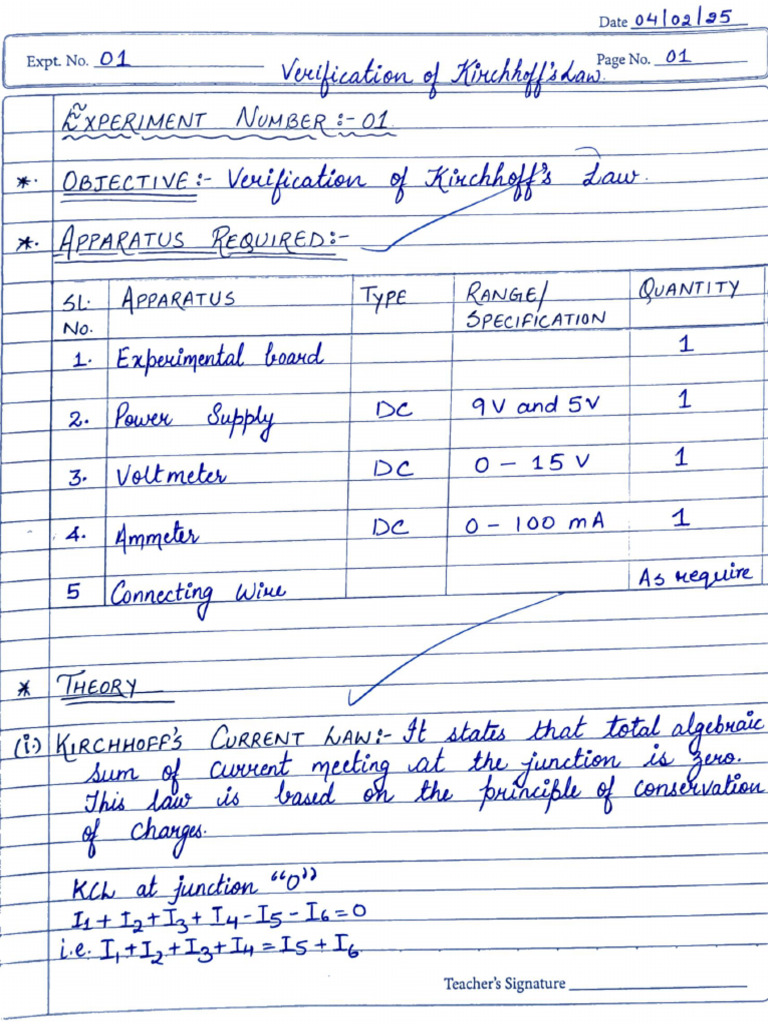 Date 04/02/25
Expt. No. 01 Verification of Kirchhoff's Law. Page No. 01
EXPERIMENT NUMBER:- 01
*. OBJECTIVE:- Verification of Kirchhoff's Law.
*. APPARATUS REQUIRED:-
SL. No. APPARATUS TYPE RANGE/ SPECIFICATION QUANTITY
1. Experimental board 1
2. Power Supply DC 9V and 5V 1
3. Voltmeter DC 0 - 15 V 1
4. Ammeter DC 0 - 100 mA 1
5 Connecting Wire As require
* THEORY
(i.) KIRCHHOFF'S CURRENT LAW:- It states that total algebraic
sum of current meeting at the junction is zero.
This law is based on the principle of conservation
of charges.
KCL at junction "O"
I1 + I2 + I3 + I4 - I5 - I6 = 0
i.e. I1 + I2 + I3 + I4 = I5 + I6
Teacher's Signature